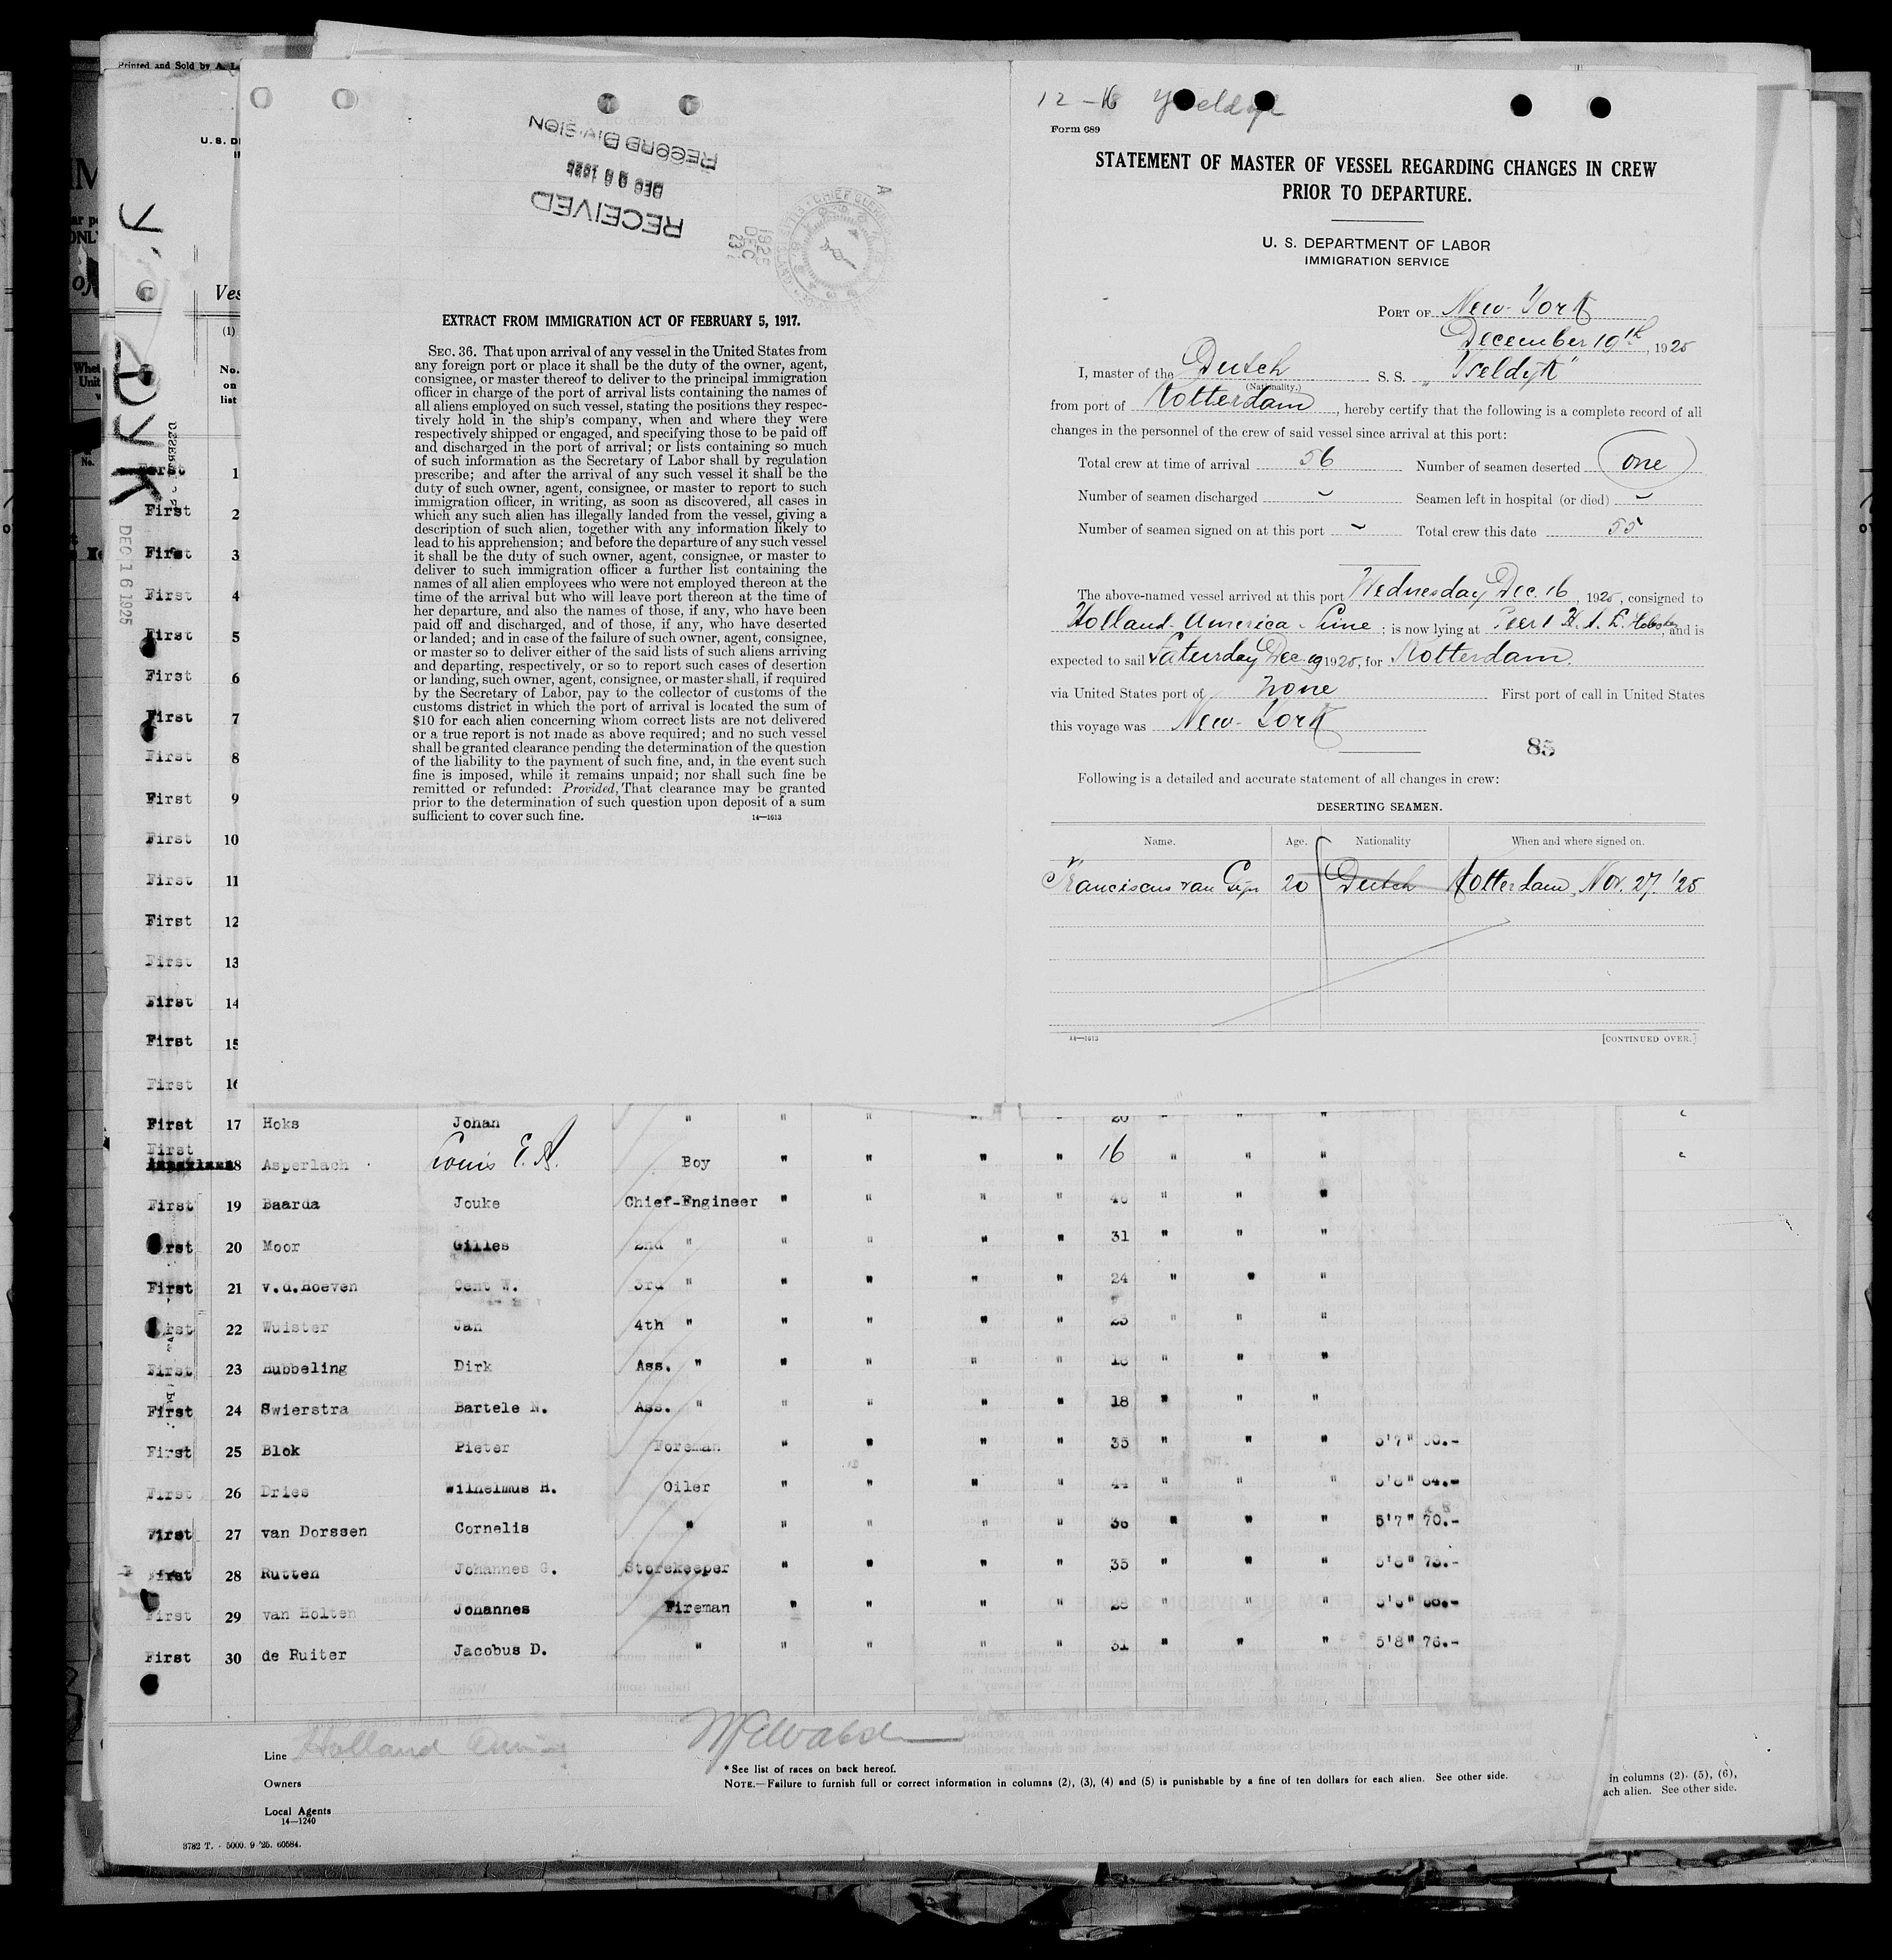 Printed and Sold by A. L
12 - 16 Yseldyk
Form 689
STATEMENT OF MASTER OF VESSEL REGARDING CHANGES IN CREW
PRIOR TO DEPARTURE.
U. S. DEPARTMENT OF LABOR
IMMIGRATION SERVICE
PORT OF New-York
December 19th, 1925
I, master of the Dutch S. S. "Yseldyk"
(Nationality.)
from port of Rotterdam, hereby certify that the following is a complete record of all
changes in the personnel of the crew of said vessel since arrival at this port:
Total crew at time of arrival 56 Number of seamen deserted one
Number of seamen discharged - Seamen left in hospital (or died) -
Number of seamen signed on at this port - Total crew this date 55
The above-named vessel arrived at this port Wednesday Dec. 16, 1925, consigned to
Holland-America-Line; is now lying at Peer 1 H. A. L. Hoboken, and is
expected to sail Saturday Dec. 19 1925, for Rotterdam.
via United States port of none First port of call in United States
this voyage was New-York
85
Following is a detailed and accurate statement of all changes in crew:
DESERTING SEAMEN.
Name. Age. Nationality When and where signed on.
Franciscus van 20 Dutch Rotterdam, Nov. 27. '25
14—1613
[CONTINUED OVER.]
RECORD DIVISION
DEC 1925
RECEIVED
1925
DEC
23
CHIEF CLERK
EXTRACT FROM IMMIGRATION ACT OF FEBRUARY 5, 1917.
SEC. 36. That upon arrival of any vessel in the United States from
any foreign port or place it shall be the duty of the owner, agent,
consignee, or master thereof to deliver to the principal immigration
officer in charge of the port of arrival lists containing the names of
all aliens employed on such vessel, stating the positions they respec-
tively hold in the ship's company, when and where they were
respectively shipped or engaged, and specifying those to be paid off
and discharged in the port of arrival; or lists containing so much
of such information as the Secretary of Labor shall by regulation
prescribe; and after the arrival of any such vessel it shall be the
duty of such owner, agent, consignee, or master to report to such
immigration officer, in writing, as soon as discovered, all cases in
which any such alien has illegally landed from the vessel, giving a
description of such alien, together with any information likely to
lead to his apprehension; and before the departure of any such vessel
it shall be the duty of such owner, agent, consignee, or master to
deliver to such immigration officer a further list containing the
names of all alien employees who were not employed thereon at the
time of the arrival but who will leave port thereon at the time of
her departure, and also the names of those, if any, who have been
paid off and discharged, and of those, if any, who have deserted
or landed; and in case of the failure of such owner, agent, consignee,
or master so to deliver either of the said lists of such aliens arriving
and departing, respectively, or so to report such cases of desertion
or landing, such owner, agent, consignee, or master shall, if required
by the Secretary of Labor, pay to the collector of customs of the
customs district in which the port of arrival is located the sum of
$10 for each alien concerning whom correct lists are not delivered
or a true report is not made as above required; and no such vessel
shall be granted clearance pending the determination of the question
of the liability to the payment of such fine, and, in the event such
fine is imposed, while it remains unpaid; nor shall such fine be
remitted or refunded: Provided, That clearance may be granted
prior to the determination of such question upon deposit of a sum
sufficient to cover such fine.
14—1613
U. S. D
Ves
(1)
No.
on
list
DYK
DEC 16 1925
1
First 2
First 3
First 4
First 5
First 6
First 7
First 8
First 9
First 10
First 11
First 12
First 13
First 14
First 15
First 16
First 17 Hoks Johan " " " " " 20 " " "
First
18 Asperlach Louis E. A. Boy " " " " 16 " " "
First 19 Baarda Jouke Chief-Engineer " " " " 46 " " "
First 20 Moor Gilles 2nd " " " " " 31 " " "
First 21 v.d.Hoeven Cent W. 3rd " " " " " 24 " " "
First 22 Wuister Jan 4th " " " " " 23 " " "
First 23 Hubbeling Dirk Ass. " " " " " 18 " " "
First 24 Swierstra Bartele N. Ass. " " " " " 18 " " "
First 25 Blok Pieter Foreman " " " " 35 " " " 5'7"
First 26 Dries Wilhelmus H. Oiler " " " " 44 " " " 5'8" 84.-
First 27 van Dorssen Cornelis " " " " " 36 " " " 5'7" 70.-
First 28 Rutten Johannes G. Storekeeper " " " " 35 " " " 5'8" 73.-
First 29 van Holten Johannes Fireman " " " " 28 " " " 5'6" 68.-
First 30 de Ruiter Jacobus D. " " " " " 31 " " " 5'8" 76.-
Line Holland
Owners
Local Agents
14—1240
3782 T. - 5000. 9-'25. 60584.
* See list of races on back hereof.
NOTE.—Failure to furnish full or correct information in columns (2), (3), (4) and (5) is punishable by a fine of ten dollars for each alien. See other side.
in columns (2), (5), (6),
ach alien. See other side.